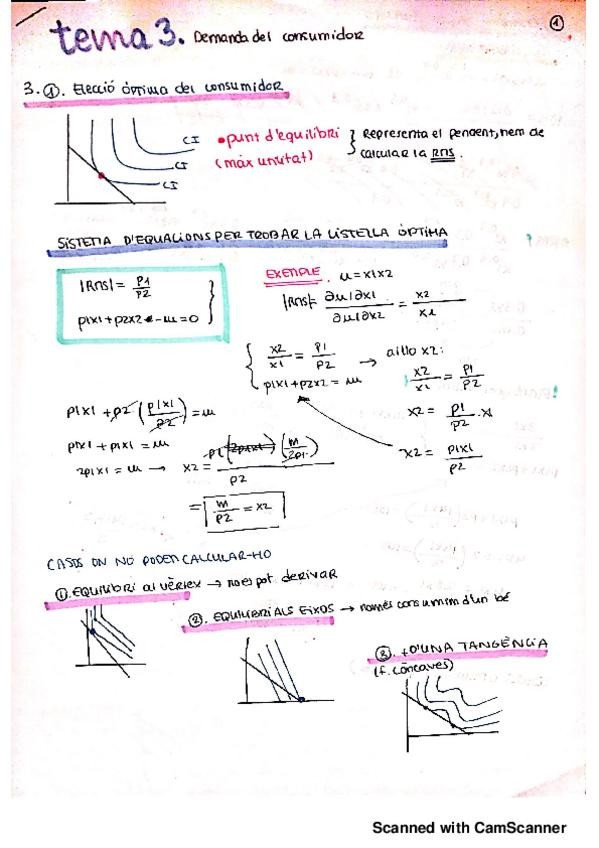 1
tema 3. Demanda del consumidor
3.1. Elecció óptima del consumidor
CI
CI
CI
• punt d'equilibri
(màx utilitat)
Representa el pendent, hem de
calcular la RMS.
SISTEMA D'EQUACIONS PER TROBAR LA CISTELLA ÒPTIMA
|RMS| = P1/P2
p1x1+p2x2 - m=0
EXEMPLE. u=x1x2
|RMS|= ∂u/∂x1 / ∂u/∂x2 = x2/x1
x2/x1 = p1/p2
p1x1+p2x2 = m
→ aïllo x2:
x2/x1 = p1/p2
x2 = p1/p2 · x1
x2 = p1x1/p2
p1x1 + p2 (p1x1/p2) = m
p1x1 + p1x1 = m
2p1x1 = m → x2 = p1 (2p1x1) (m/2p1) / p2
= m/p2 = x2
CASOS ON NO PODEM CALCULAR-HO
1. EQUILIBRI al vèrtex → no es pot derivar
2. EQUILIBRI ALS EIXOS → només consumim d'un bé
3. +D'UNA TANGÈNCIA
(f. còncaves)
Scanned with CamScanner